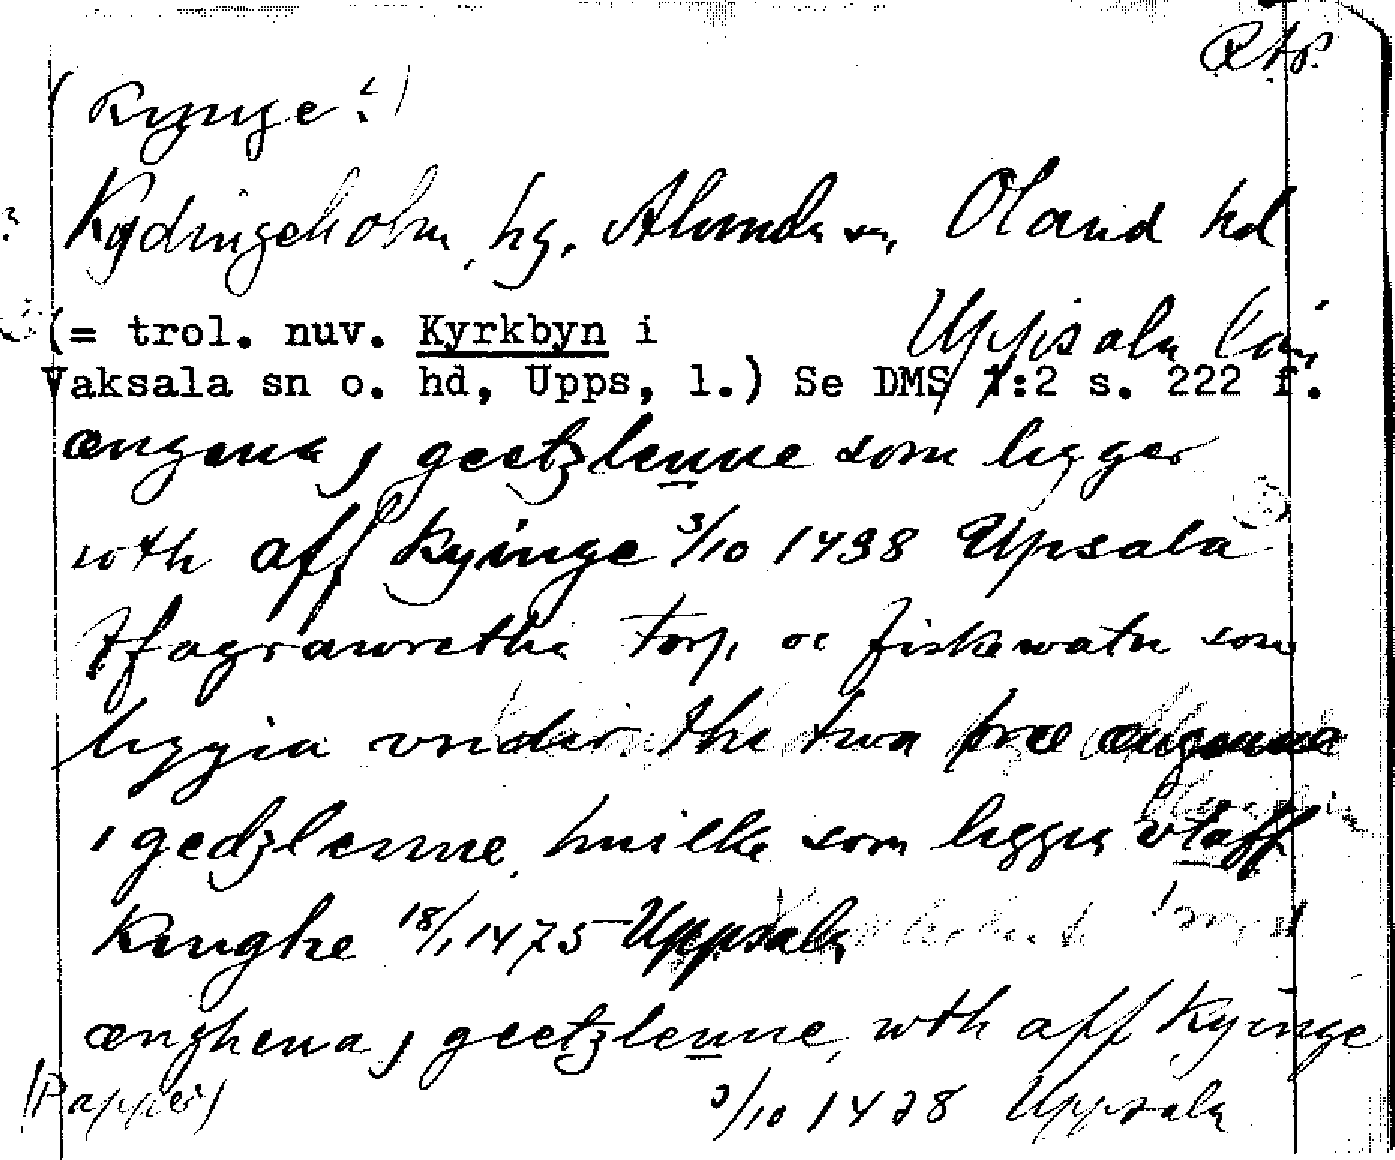 RAP.
(Kyinge?)
Kydingeholm, hg, Alunda sn, Oland hd
Uppsala län
(= trol. nuv. Kyrkbyn i
Vaksala sn o. hd, Upps, l.) Se DMS 1:2 s. 222 f.
ængena j geetzlenne som ligger
wth aff Kyinge 3/10 1438 Upsala
Ffagrawretha torp oc fiskewatn som
liggia vnder the twa
i gedzlenne huilka som liggia vtaff
Kinghe 18/1 1475 Uppsala
ænghena j geetzlenne, wth aff Kyinge
(Papper) 3/10 1438 Uppsala